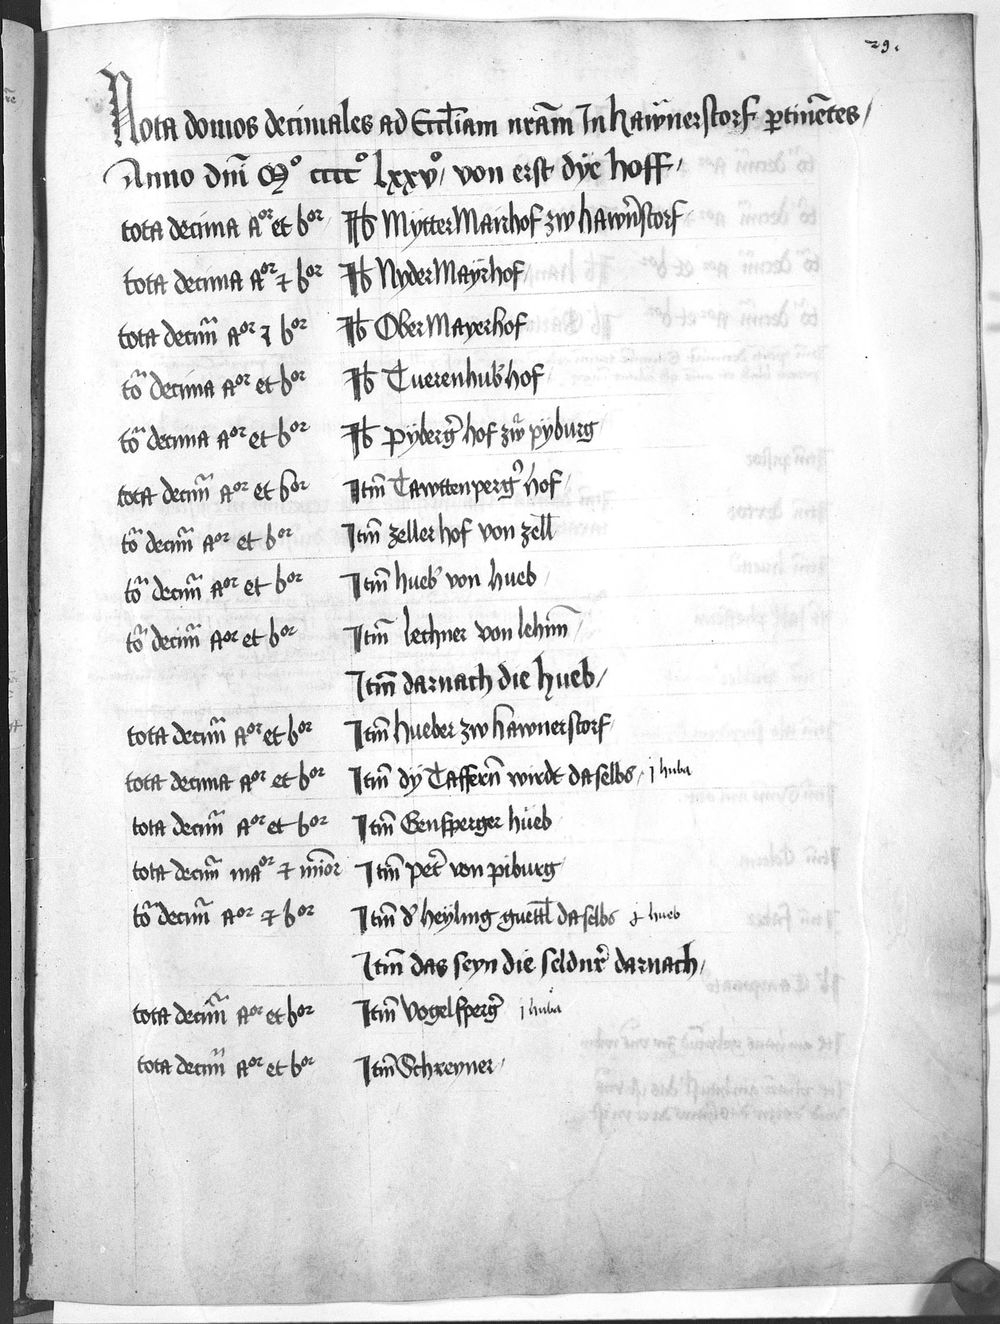 29.
Nota domos decimales ad Eccl̄iam nr̄am In hawnerstorf ꝑtinētes /
Anno dn̄i Mº ccccº lxxvº / von erst dÿe hoff /
tota decima aor et bor It̄ Mytter Mairhof zw hawn̄storf
tota decima aor ⁊ bor It̄ Nyder Mayrhof
tota decim̄ aor ⁊ bor It̄ Ober Mayerhof
tō decima aor et bor It̄ Tuerenhub hof
tō decima aor et bor It̄ pÿberḡ hof zw pÿburg
tota decim̄ aor et bor Itm̄ Tawttenperḡ hof /
tō decim̄ aor et bor Itm̄ zeller hof von zell
tō decim̄ aor et bor Itm̄ hueb von hueb
tō decim̄ aor et bor Itm̄ lechner von lehim̄ /
Itm̄ darnach die hueb /
tota decim̄ aor et bor Itm̄ hueber zw hawnerstorf
tota decima aor et bor Itm̄ dÿ Taffern̄ wirdt daselbs / j huba
tota decim̄ aor et bor Itm̄ Gensperger hueb
tota decim̄ maor ⁊ min̄or Itm̄ pet̄ von piburg
tō decim̄ aor ⁊ bor Itm̄ d' heÿling guettl daselbs hueb
Itm̄ das seyn die seldn̄ darnach /
tota decim̄ aor et bor Itm̄ Vogelsperḡ j huba
tota decim̄ aor et bor Itm̄ Schreyner /